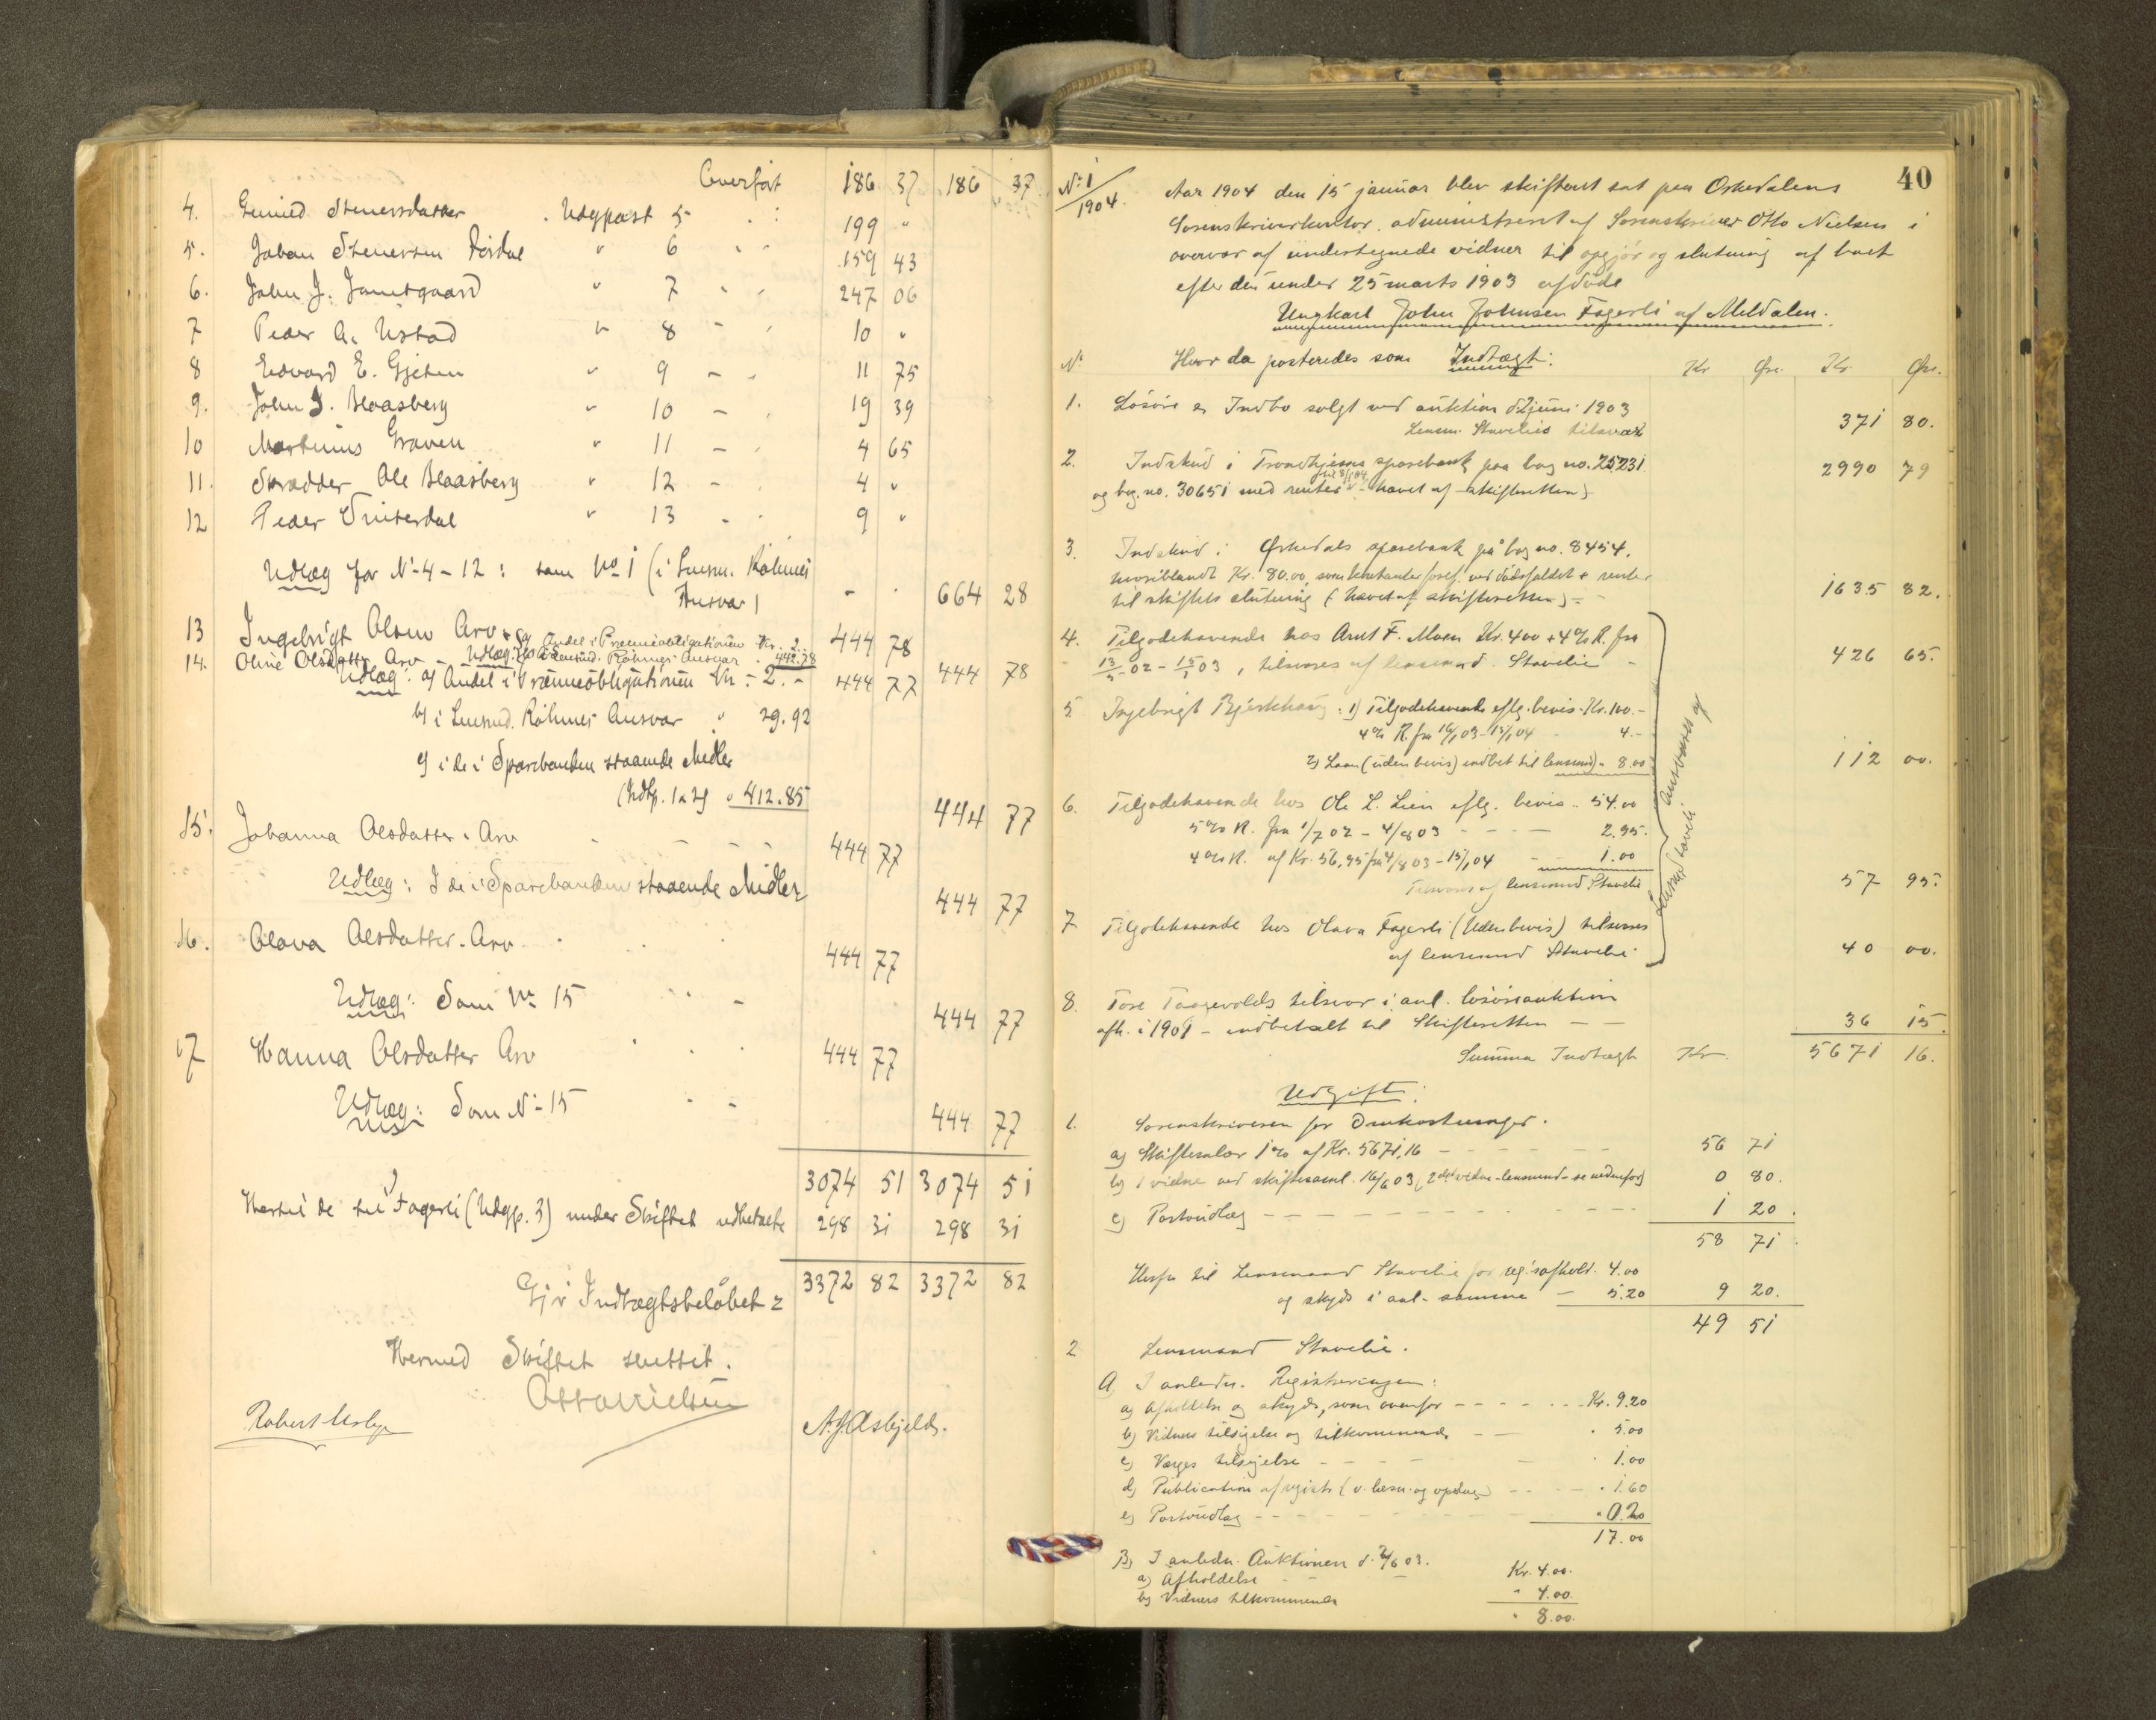 Overført 186 37 186 37
4. Gunild Steuersdatter Udgpost 5 199 "
5. Johan Steuersen Dørdal " 6 159 43
6. John J. Jamtgaard " 7 247 06
7 Peder A. Ustad " 8 10 "
8 Edvard E. Gjeten " 9 11 75
9. John J. Blaasberg " 10 19 39
10 Martinus Graven " 11 4 65
11. Skrædder Ole Blaasberg " 12 4 "
12 Peder " 13 9 "
Udlæg for No 4-12: som No 1 (i Lensm. Røhmes
Ansvar) 664 28
13 Ingebrigt Olsen Arv 444 78
Udlæg: a) Andel i Præmieobligationen Kr. 2.-
b) i Lensmd. Røhmes Ansvar 442.78 444 78
14. Oline Olsdatter Arv 444 77
Udlæg: a) Andel i Præmieobligationen Kr. 2.-
b) i Lensmd. Røhmes Ansvar " 29.92
c) i de i Sparebanken staaende Midler
(Indtp. 1 & 2) " 412.85 444 77
15. Johanna Olsdatter. Arv 444 77
Udlæg: I de i Sparebanken staaende Midler 444 77
16. Olava Olsdatter. Arv 444 77
Udlæg: Som No 15 444 77
17 Hanna Olsdatter Arv 444 77
Udlæg: Som No 15 444 77
3074 51 3074 51
Hertil de til J Fagerli (Udgp. 3) under Skiftet udbetalte 298 31 298 31
Gjør Indtægtsbeløbet = 3372 82 3372 82
Hermed Skiftet sluttet.
Otto Nielsen
Robert A. J. Asbjeld.
40
No 1
1904.
Aar 1904 den 15 januar blev skifteret sat paa Orkedalens
Sorenskriverkontor, administreret af Sorenskriver Otto Nielsen i
overvær af undertegnede vidner til opgjør og slutning af boet
efter den under 25 marts 1903 afdøde
Ungkarl John Johnsen Fagerli af Meldalen.
No Hvor da posteredes som Indtægt: Kr Øre. Kr. Øre.
1. Løsøre & Indbo solgt ved auktion d 2 juni 1903
Lensm. Stavelies tilsvar 371 80.
2. Indskud i Trondhjems sparebank paa bog no. 25,231
og bog. no. 30651 med renter til 8/1 04 hævet af skifteretten) 2990 79
3. Indskud i Ørkedals sparebank på bog no. 8454,
hvoriblandt Kr. 80.00, som kontanter foref. ved dødsfaldet + renter
til skiftets slutning (hævet af skifteretten) 1635 82.
4. Tilgodehavende hos Arnt F. Moen Kr. 400 + 4% R. fra
02 - 03, tilsvares af lensmand. Stavelie 426 65.
5. Ingebrigt Bjørkhaug: 1) Tilgodehavende eflg. bevis. Kr. 100.-
4% R. fra 03 - 15/1 04 4.-
2) Laan (uden bevis) indbet til lensmd. 8.00 112 00.
6. Tilgodehavende hos Ole L. Lien eflg. bevis.. 54.00
5% R. fra 1/7 02 - 4/8 03 2.95.
4% R. af Kr. 56,95 fra 4/8 03 - 15/1 04 1.00
Tilsvares af lensmand Stavelie 57 95.
7 Tilgodehavende hos Olava Fagerli (Uden bevis) tilsvares
af lensmand Stavelie 40 00.
Ansvares af
Lensmd Stavelie
8. Tore tilsvar i anl. løsøreauktion
afh. i 1901 - indbetalt til Skifteretten 36 15.
Summa Indtægt Kr. 5671 16.
Udgift:
1. Sorenskriveren for Omkostninger.
a) Skiftesalær 1% af Kr. 5671,16 56 71
b) 1 vidne ved skiftesaml. 16/6 03 (2det vidne - lensmand - se nedenfor) 0 80.
c) Portoudlæg 1 20.
58 71.
Herfra til Lensmand Stavelie for reg's afhold. 4.00
og skyds i anl. samme 5.20 9 20.
49 51
2 Lensmand Stavelie.
A I anledn. Registreringen:
a) Afholdelse og skyds, som ovenfor Kr. 9.20
b) Vidners tilsigelse og tilkommende 5.00
c) Værges tilsigelse 1.00
d) Publication af registr 1.60
e) Portoudlæg 0.20
17.00
B) I anledn. Auktionen d. 2/6 03.
a) Afholdelse Kr. 4.00.
b) Vidners tilkommende " 4.00.
" 8.00.